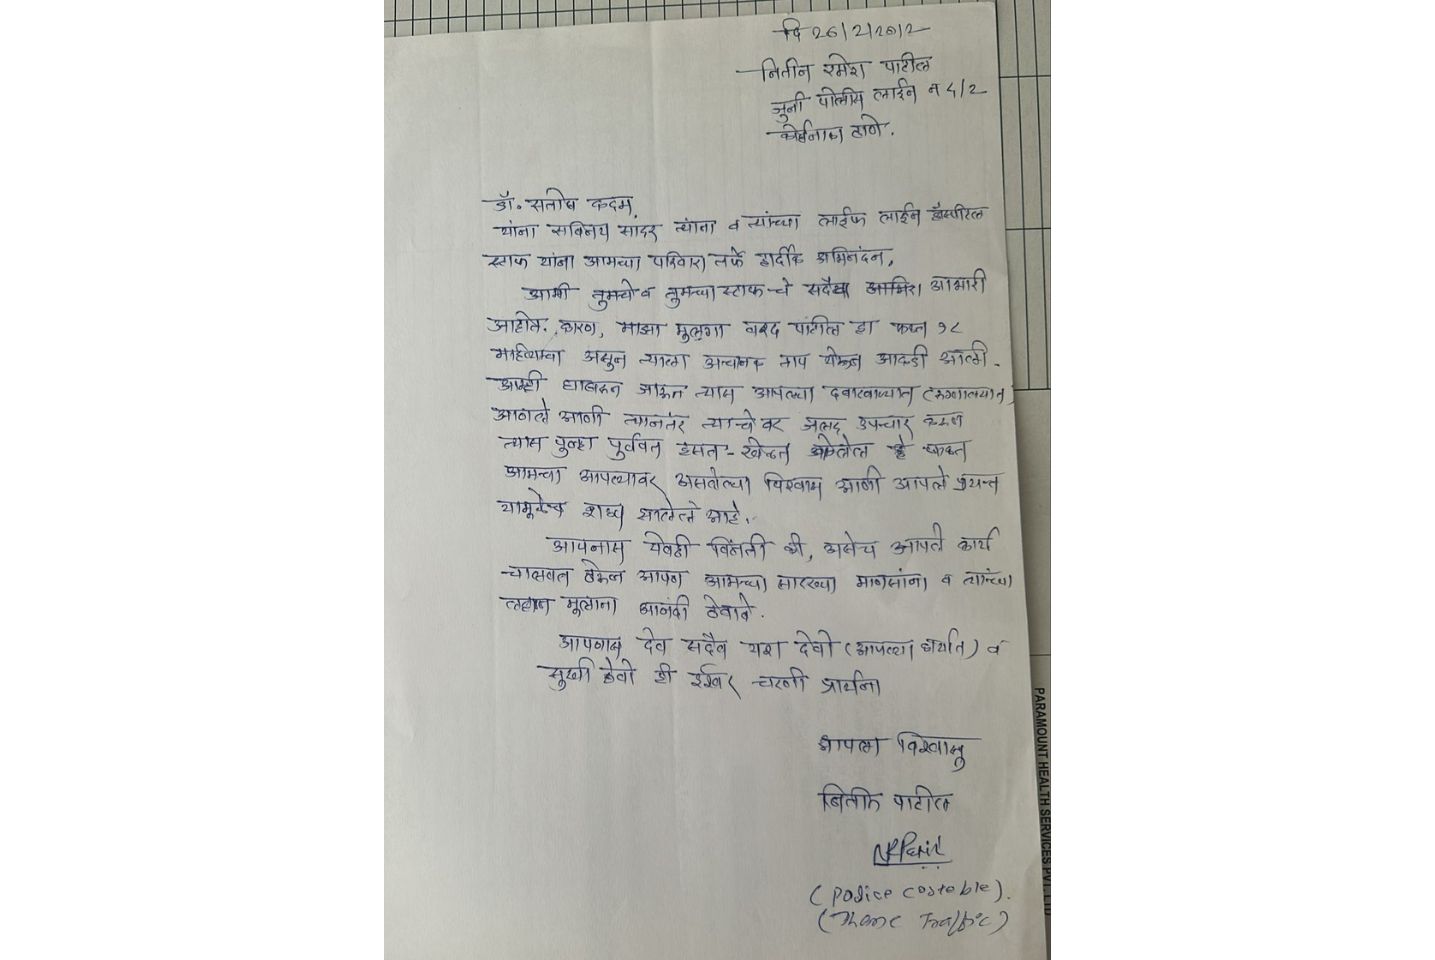 दि 26/2/2012
नितीन रमेश पाटील
जुनी पोलीस लाईन न 5/2
ठाणे.
डॉ. सतीष कदम,
यांना सविनय सादर त्यांना व त्यांच्या लाईफ लाईन हॉस्पीटल
स्टाफ यांना आमच्या परिवारा तर्फे हार्दीक अभिनंदन,
आम्ही तुमचे व तुमच्या स्टाफ चे सदैव आभारी
आहोत. कारण, माझा मुलगा वरद पाटील हा फक्त १८
महिन्याचा असुन त्याला अचानक ताप येऊन आकडी आली.
आम्ही घाबरून जाऊन त्यास आपल्या दवाखाण्यात (रुग्णालयात)
आणले आणी त्यानंतर त्याचेवर जलद उपचार करुण
त्यास पुन्हा पुर्ववत हसत-खेळत केलेल हे फक्त
आमचा आपल्यावर असलेल्या विश्वास आणी आपले प्रयत्न
यामुळेच शक्य झालेले आहे.
आपनास येवढी विनंती की, असेच आपले कार्य
चालवत ठेऊन आपण आमच्या सारख्या माणसांना व त्यांच्या
लहान मुलांना आनंदी ठेवावे.
आपणास देव सदैव यश देवो (आपल्या कार्यात) व
सुखी ठेवो ही ईश्वर चरणी प्रार्थना
आपला विश्वासु
नितीन पाटील
NRPatil
(Police Costeble).
(Thane Traffic)
PARAMOUNT HEALTH SERVICES PVT. LTD